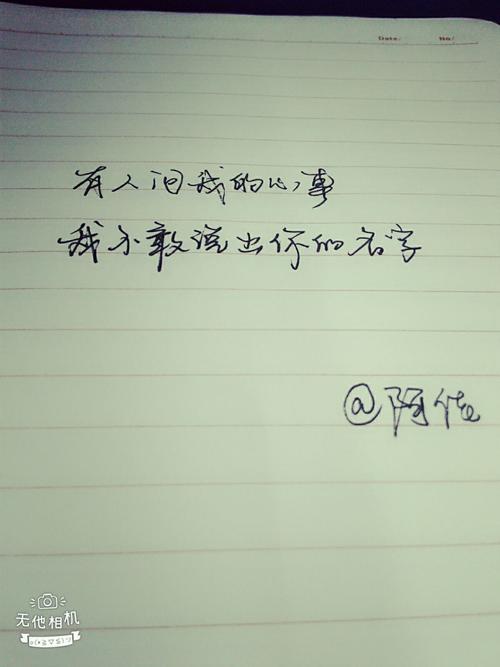 Date: No:
有人问我的心事
我不敢说出你的名字
@阿佐
无他相机